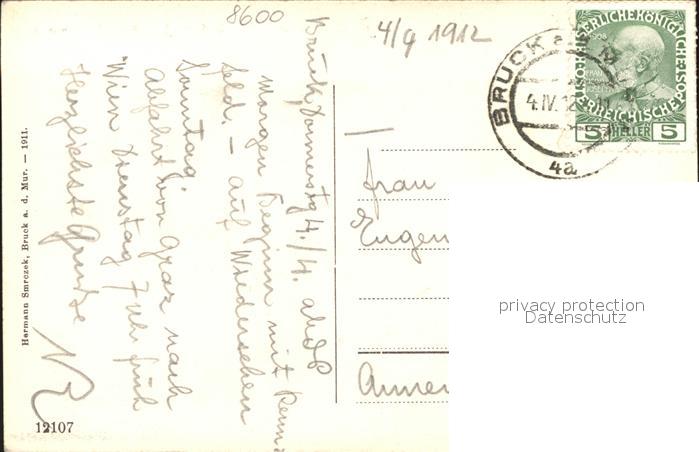 8600
4/9 1912
KAISERLICHE KÖNIGLICHE ÖSTERREICHISCHE
1908
5 HELLER 5
BRUCK a. M
4.IV.12
4a
Bruck, Donnerstg 4./4. abds
Morgen Beginn mit
feld. – auf Wiedersehen
Sonntag.
Abfahrt von Graz nach
Wien Dienstag 7 uhr früh
Herzlichste Grüße
Frau
Eugen
privacy protection
Datenschutz
Hermann Smrczek, Bruck a. d. Mur. — 1911.
12107